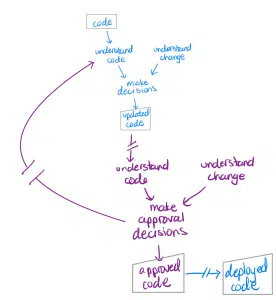 code
understand
code
understand
change
make
decisions
updated
code
understand
code
understand
change
make
approval
decisions
approved
code
deployed
code